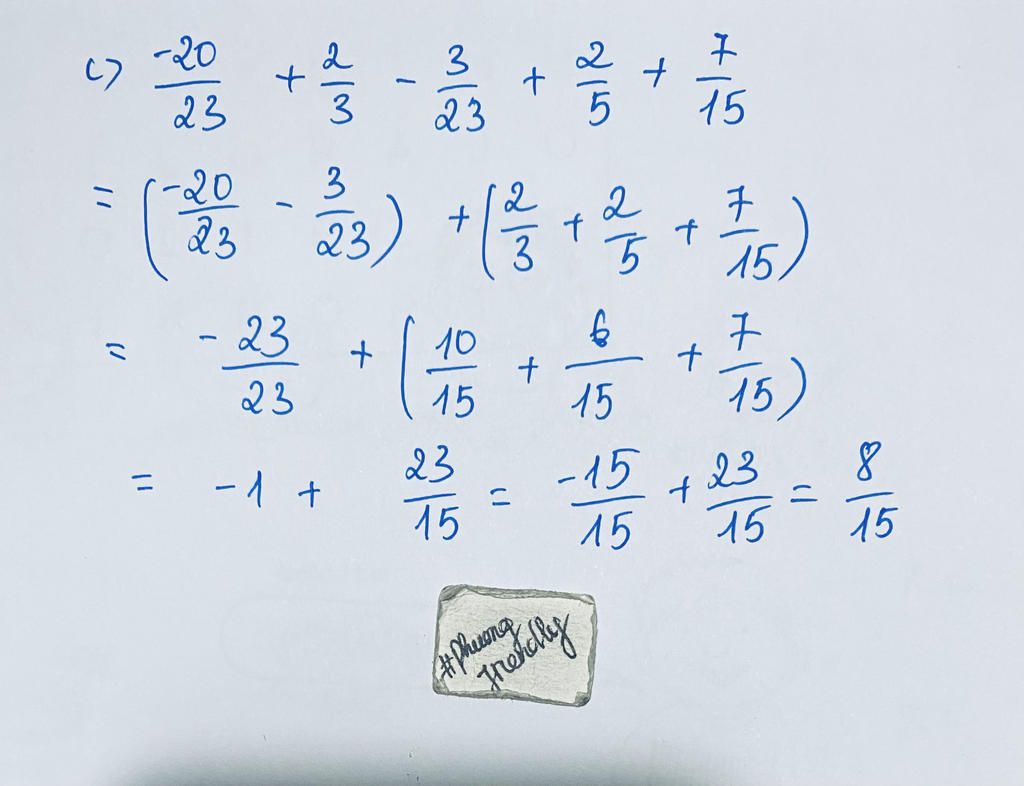 c) -20/23 + 2/3 - 3/23 + 2/5 + 7/15
= (-20/23 - 3/23) + (2/3 + 2/5 + 7/15)
= -23/23 + (10/15 + 6/15 + 7/15)
= -1 + 23/15 = -15/15 + 23/15 = 8/15
#Phuong
friendly